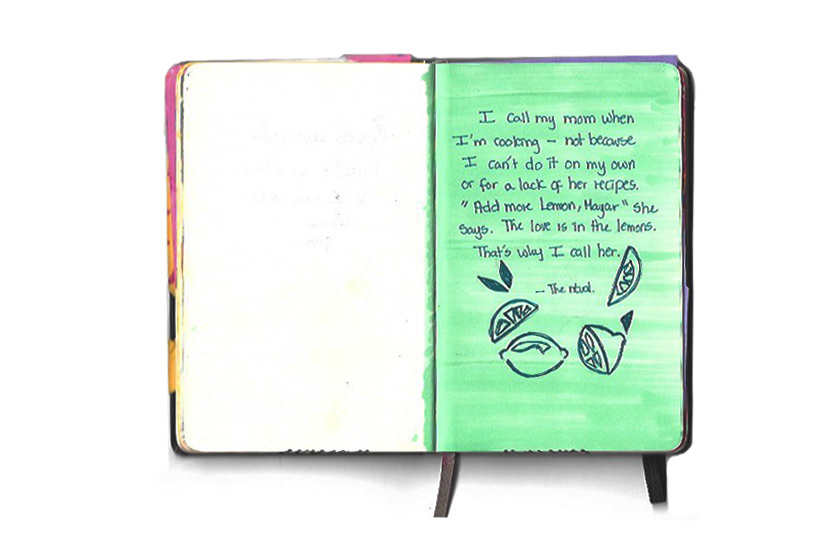 I call my mom when
I'm cooking – not because
I can't do it on my own
or for a lack of her recipes.
"Add more Lemon, Mayar" she
says. The love is in the lemons.
That's why I call her.
– The ritual.